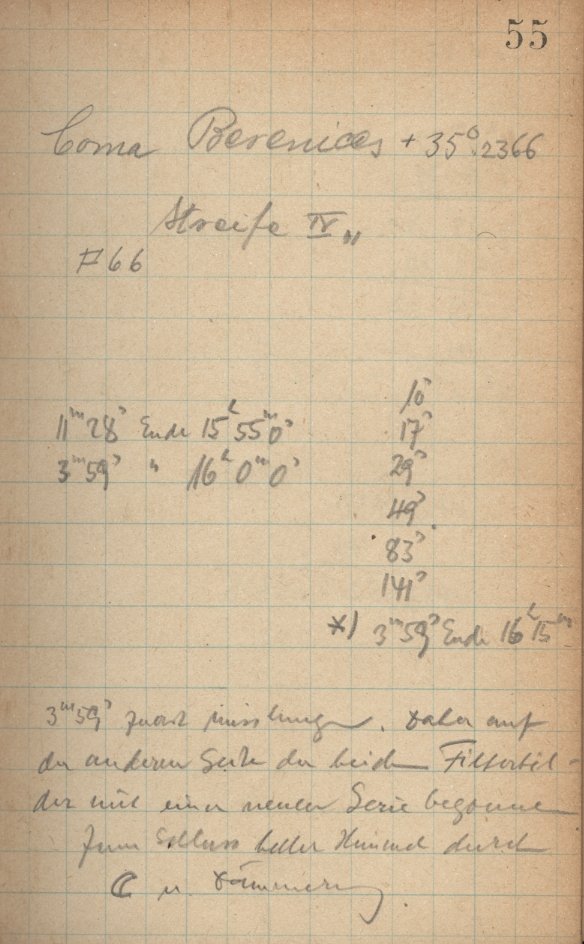 55
Coma Berenices + 35°.2366
Streife IV„
F66
10ˢ
11ᵐ 28ˢ Ende 15ʰ 55ᵐ 0ˢ 17ˢ
3ᵐ 59ˢ " 16ʰ 0ᵐ 0ˢ 29ˢ
49ˢ
83ˢ
141ˢ
*) 3ᵐ 59ˢ Ende 16ʰ 15ᵐ
3ᵐ 59ˢ zuerst misslungen. Daher auf
der anderen Seite der beiden Filterbil-
der mit einer neuen Serie begonnen
Zum Schluss heller Himmel durch
☾ u. Dämmerung.